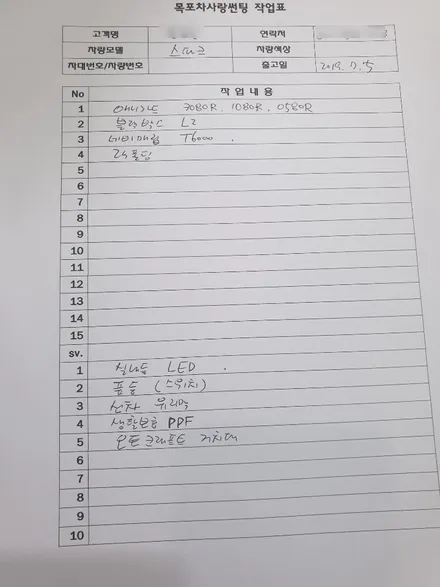 목포차사랑썬팅 작업표
고객명 연락처
차량모델 스파크 차량색상
차대번호/차량번호 출고일 2019. 7. 5
No 작 업 내 용
1 애니가드 7080R, 1080R, 0580R
2 블랙박스 L2
3 네비매립 T6000
4 락폴딩
5
6
7
8
9
10
11
12
13
14
15
sv.
1 실내등 LED
2 풋등 (스위치)
3 신차 유리막
4 생활보호 PPF
5 오토크래프트 거치대
6
7
8
9
10